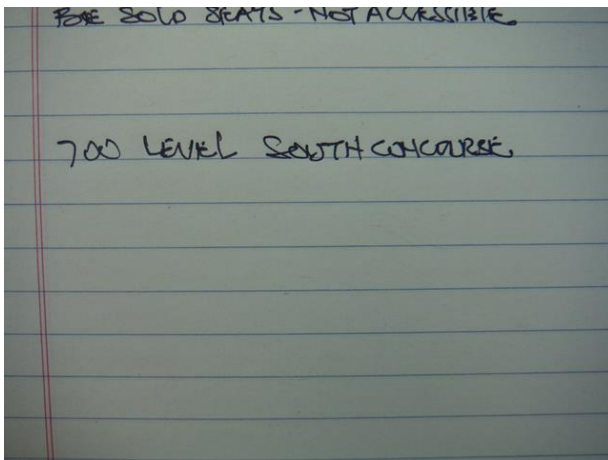 SOLD SEATS - NOT ACCESSIBLE
700 LEVEL SOUTH CONCOURSE